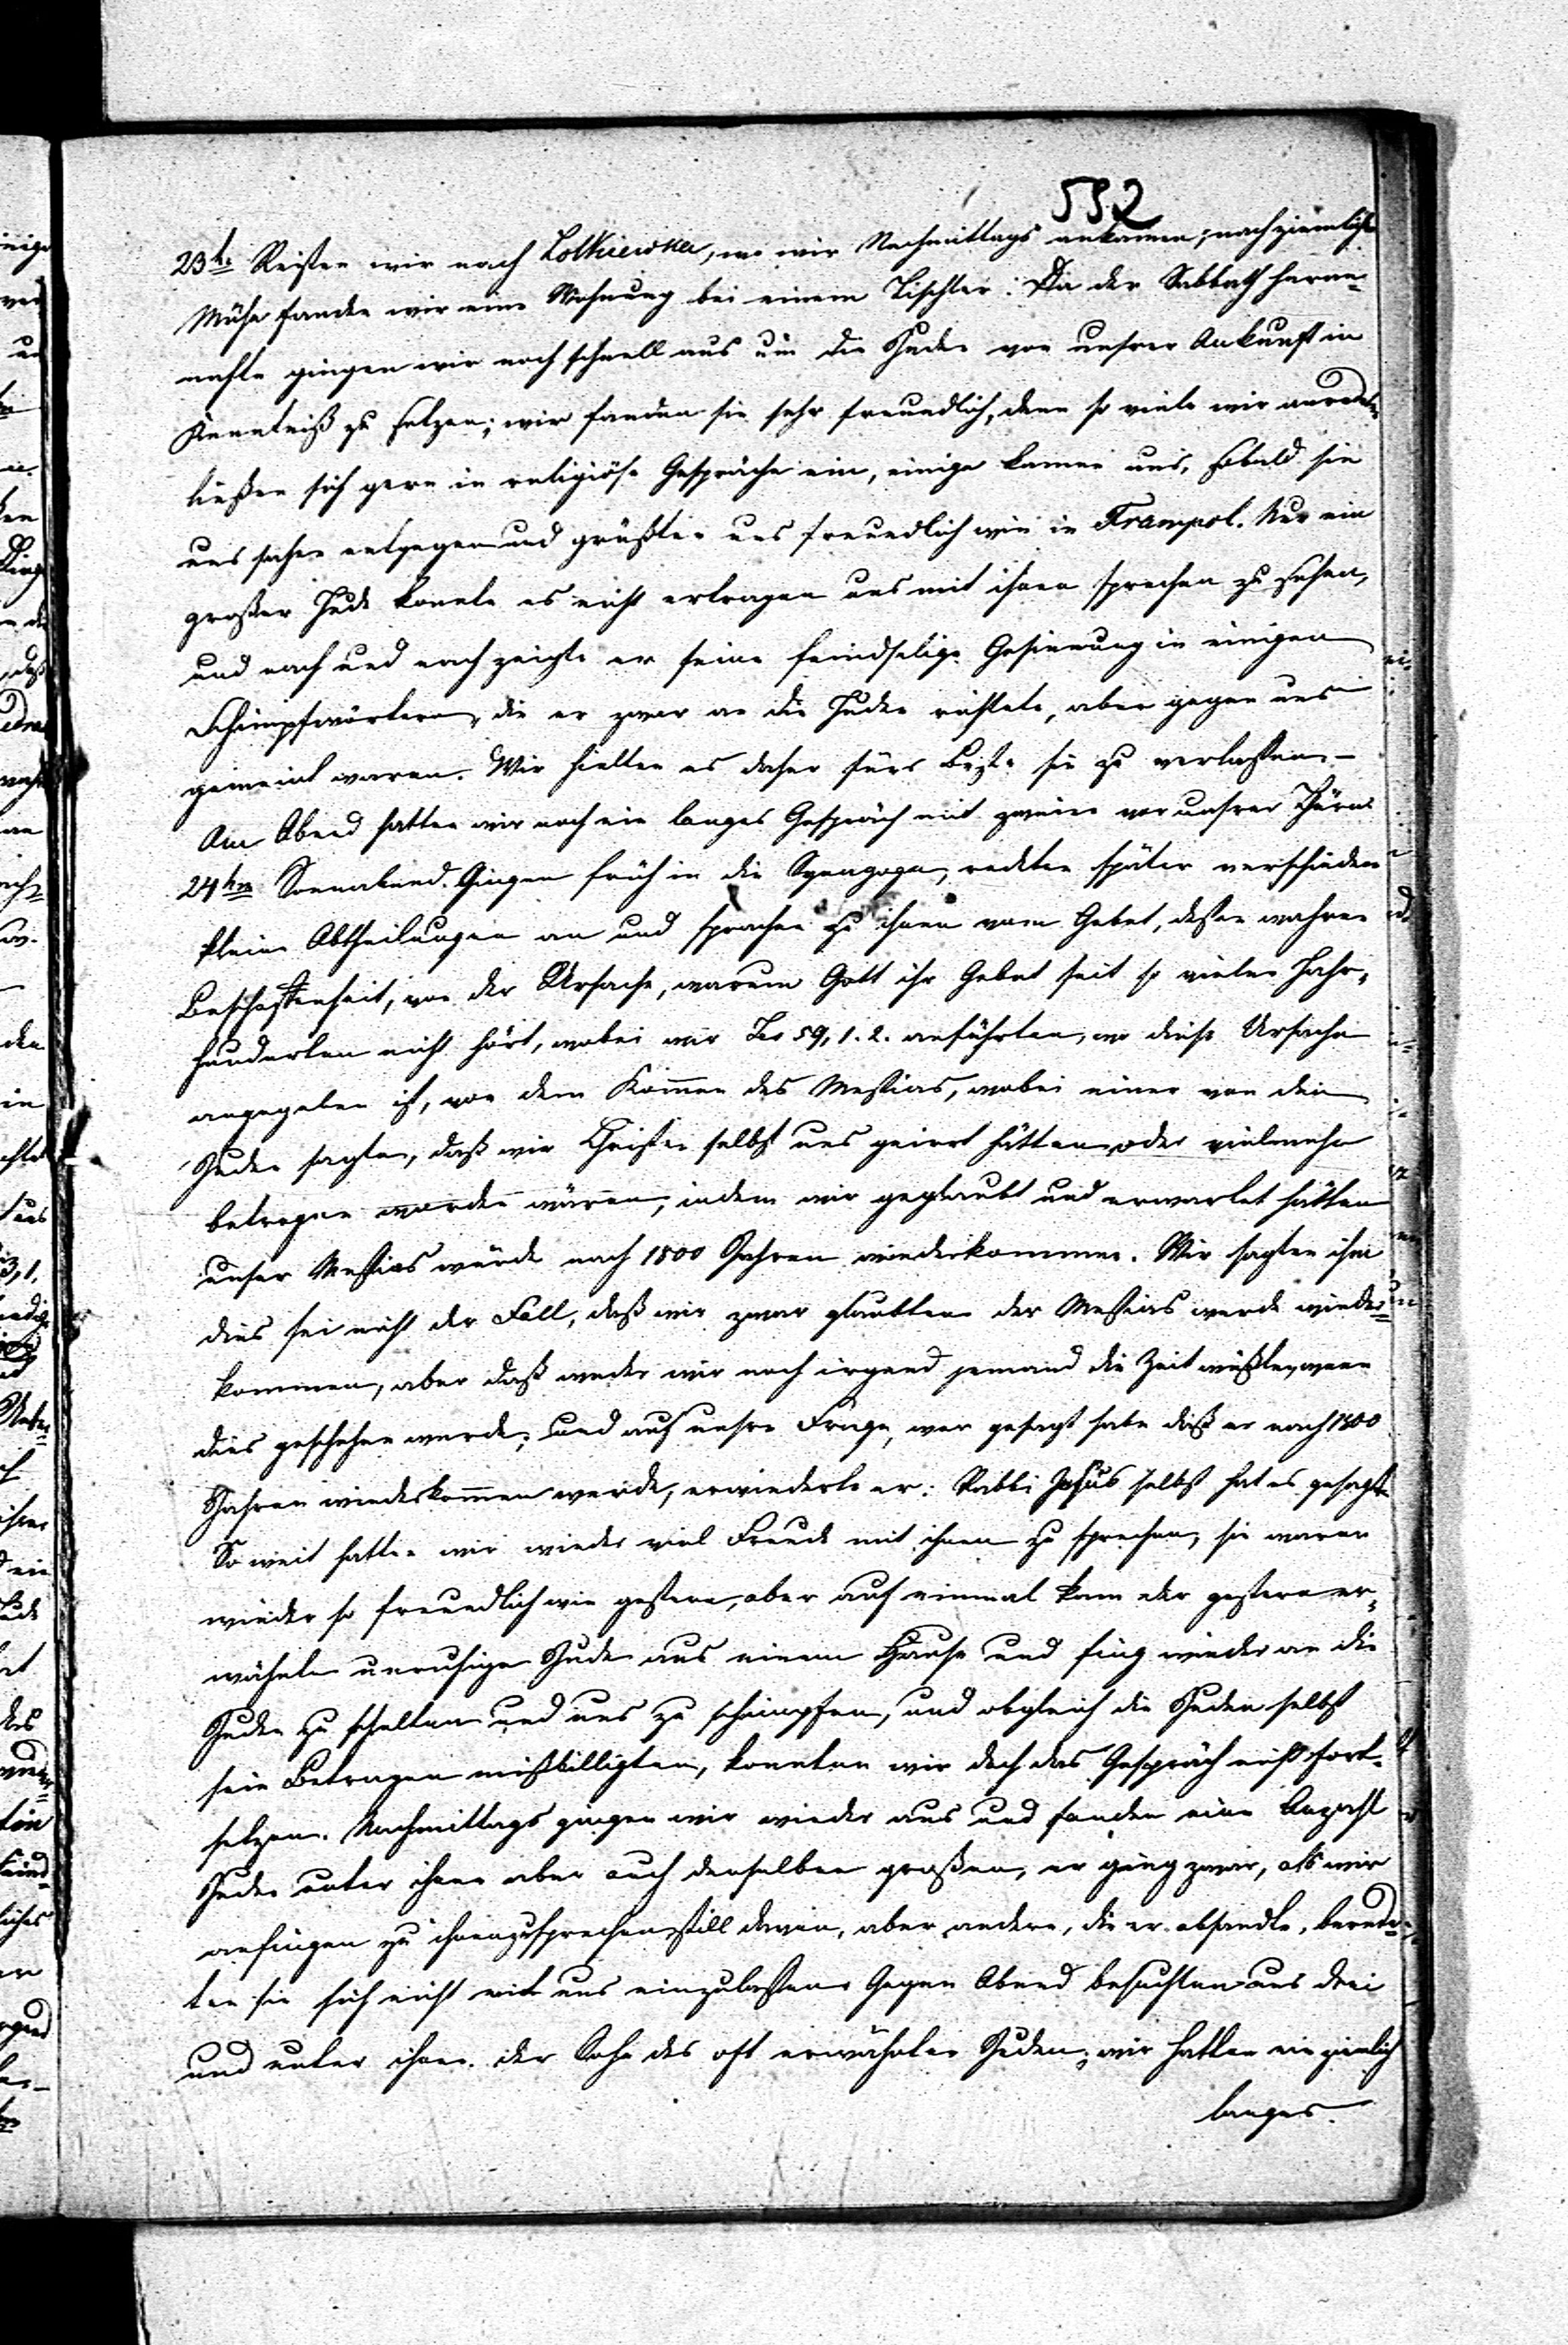 532
23t. Reisten wir nach Zolkiewka, wo wir Nachmittags ankamen; nach ziemlicher
Mühe fanden wir eine Wohnung bei einem Tischler. Da der Sabbath heran-
nahte gingen wir noch schnell aus um die Juden von unsrer Ankunft in
Kenntniß zu setzen; wir fanden sie sehr freundlich, denn so viele wir anredeten
ließen sich gern in religiöse Gespräche ein, einige kamen uns, sobald sie
uns sahen entgegen und grüßten uns freundlich wie in Frampol. Nur ein
großer Jude konnte es nicht ertragen uns mit ihnen sprechen zu sehen,
und nach und nach zeigte er seine feindselige Gesinnung in einigen
Schimpfwörtern, die er zwar an die Juden richtete, aber gegen uns
gemeint waren. Wir hielten es daher fürs Beste sie zu verlassen. –
Am Abend hatten wir noch ein langes Gespräch mit zweien vor unsrer Thüre.
24ten Sonnabend. Gingen früh in die Synagoge, redeten später verschiedene
kleine Abtheilungen an und sprachen zu ihnen vom Gebet, dessen wahren
Beschaffenheit, von der Ursache, warum Gott ihr Gebet seit so vielen Jahr-
hunderten nicht hört, wobei wir Jes 59, 1. 2. anführten, wo diese Ursache
angegeben ist, von dem Kommen des Messias, wobei einer von den
Juden sagte, daß wir Christen selbst uns geirrt hätten oder vielmehr
betrogen worden wären, indem wir geglaubt und erwartet hätten
unser Messias würde nach 1800 Jahren wiederkommen. Wir sagten ihm
dies sei nicht der Fall, daß wir zwar glaubten der Messias werde wieder-
kommen, aber daß weder wir noch irgend jemand die Zeit wüßten, wann
dies geschehen werde; und auf unsre Frage, wer gesagt habe daß er nach 1800
Jahren wiederkommen werde, erwiederte er: Rabbi Jesus selbst hat es gesagt.
So weit hatten wir wieder viel Freude mit ihnen zu sprechen, sie waren
wieder so freundlich wie gestern, aber auf einmal kam der gestern er-
wähnte unruhige Jude aus einem Hause und fing wieder an die
Juden zu schelten und uns zu schimpfen, und obgleich die Juden selbst
sein Betragen mißbilligten, konnten wir doch das Gespräch nicht fort-
setzen. Nachmittags gingen wir wieder aus und fanden eine Anzahl
Juden unter ihnen aber auch denselben großen, er ging zwar, als wir
anfingen zu ihnen zu sprechen still davon, aber andere, die er absandte, berede-
ten sie sich nicht mit uns einzulassen. Gegen Abend besuchten uns drei
und unter ihnen der Sohn des oft erwähnten Juden; wir hatten ein ziemlich
langes